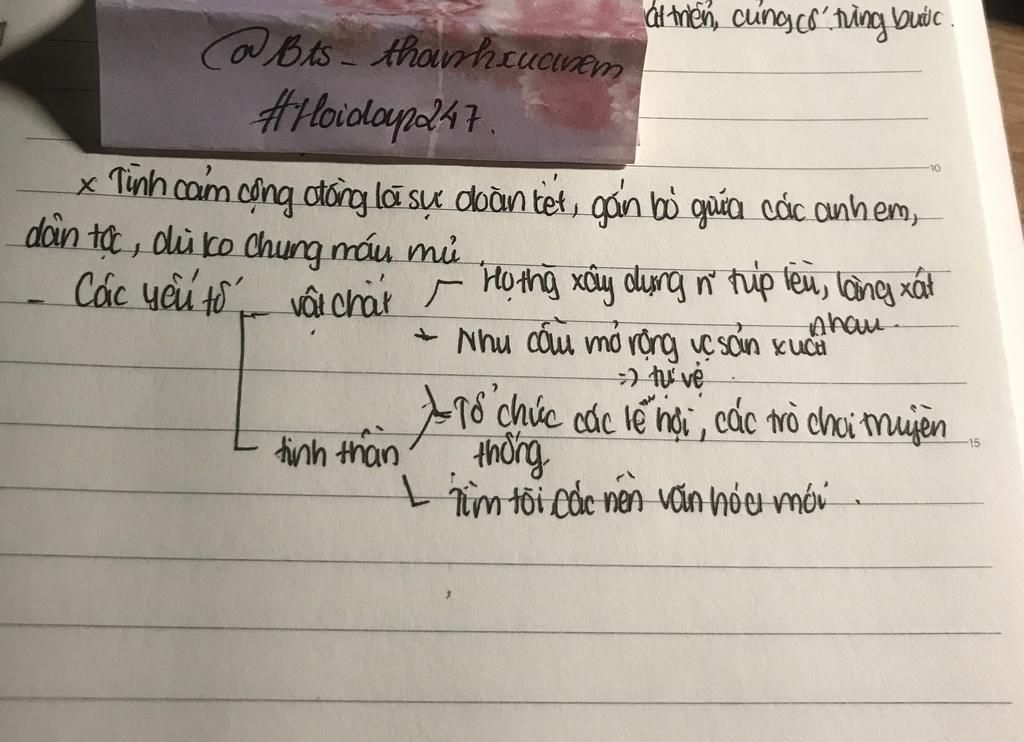 át triển, củng cố từng bước.
@Bts_thanhxuanem
#Hoidap247.
x Tình cảm cộng đồng là sự đoàn kết, gắn bó giữa các anh em,
dân tộc, dù ko chung máu mủ.
- Các yếu tố vật chất Họ xây dựng n~ túp lều, làng xát
nhau.
+ Nhu cầu mở rộng sản xuất
=> tự vệ.
Tổ chức các lễ hội, các trò chơi truyền
tinh thần thống
Tìm tòi các nền văn hóa mới.
10
15